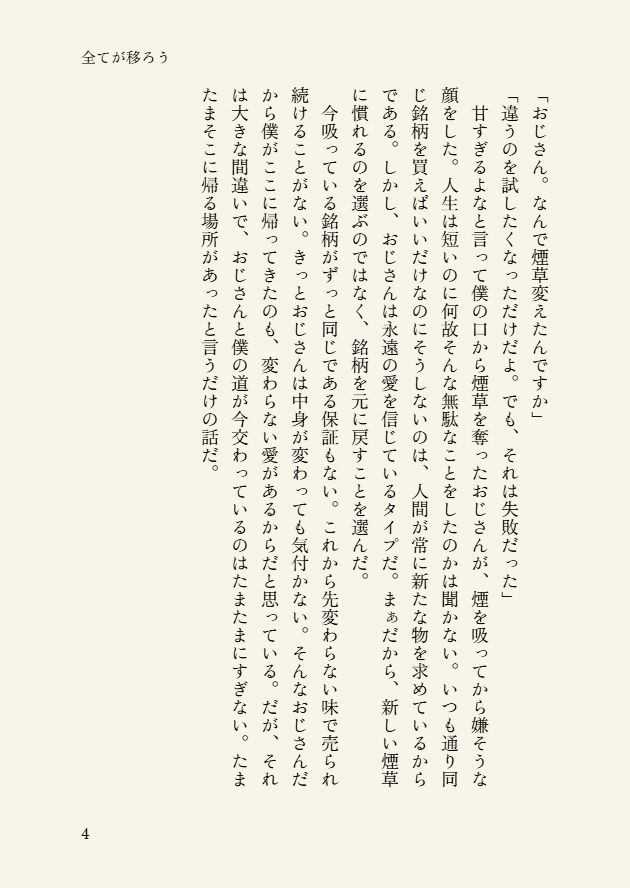 全てが移ろう
「おじさん。なんで煙草変えたんですか」
「違うのを試したくなっただけだよ。でも、それは失敗だった」
　甘すぎるよなと言って僕の口から煙草を奪ったおじさんが、煙を吸ってから嫌そうな
顔をした。人生は短いのに何故そんな無駄なことをしたのかは聞かない。いつも通り同
じ銘柄を買えばいいだけなのにそうしないのは、人間が常に新たな物を求めているから
である。しかし、おじさんは永遠の愛を信じているタイプだ。まぁだから、新しい煙草
に慣れるのを選ぶのではなく、銘柄を元に戻すことを選んだ。
　今吸っている銘柄がずっと同じである保証もない。これから先変わらない味で売られ
続けることがない。きっとおじさんは中身が変わっても気付かない。そんなおじさんだ
から僕がここに帰ってきたのも、変わらない愛があるからだと思っている。だが、それ
は大きな間違いで、おじさんと僕の道が今交わっているのはたまたまにすぎない。たま
たまそこに帰る場所があったと言うだけの話だ。
4